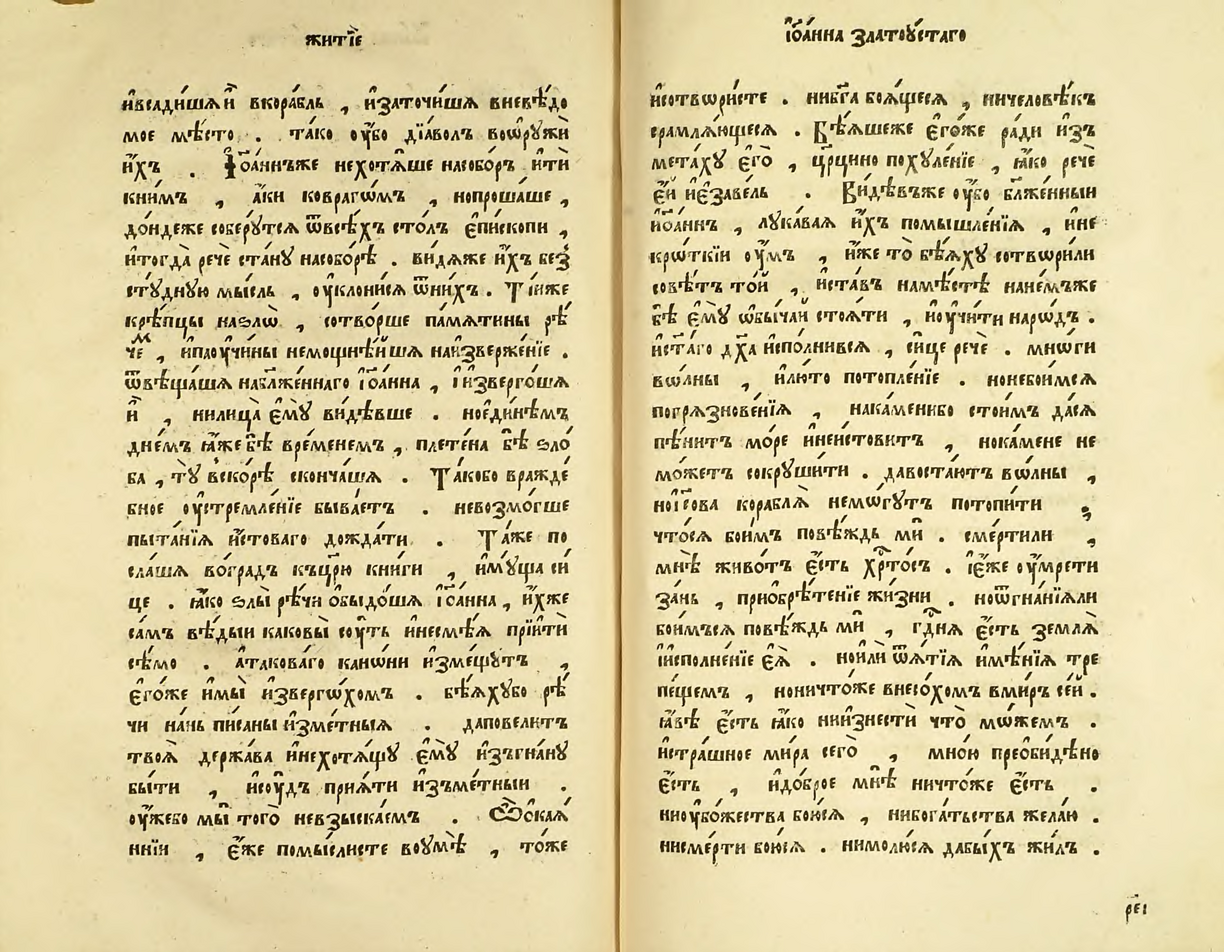 житїе
и҆всадиша́ и҆ вкора́бль , и҆заточи́ша вневѣ́до
мое мѣ́сто . та́ко оу҆́бо дїа́волъ воѡружи́
и҆́хъ . Іѡ҆а́ннъже нехотѧ́ше насобо́ръ и҆ти́
кни́мъ , а҆́ки ковраго́мъ , нопроша́ше ,
до́ндеже собе́рꙋтсѧ ѿвсѣ́хъ сто́лъ е҆пи́скопи ,
и҆тогда̀ речѐ ста́нꙋ насобо́рѣ . ви́дѧже и҆́хъ без
стꙋ́днꙋю мы́сль , оу҆клони́сѧ ѿни́хъ . Ті́иже
крѣ́пцы наѕлѡ̀ , сотво́рше па́мѧтины рѣ́
че́м , и҆плоучи́ны немощнѣ́йшѧ наизверже́нїе .
ѿвѣща́шѧ наблаже́ннаго і҆ѡа́нна , і҆изверго́шѧ
и҆̀ , нилица̀ е҆мꙋ̀ ви́дѣвше . ноеди́нѣмъ
дне́мъ ꙗ҆́же бѣ̀ вре́менемъ , плете́на бѣ̀ ѕло́
ба , тꙋ̀ вско́рѣ сконча́шѧ . Та́кобо вражде́
бное оу҆стремле́нїе быва́етъ . невозмо́гше
пыта́нїѧ и҆́стоваго дожда́ти . Та́же по
сла́шѧ вогра́дъ къцр҃ю̀ кни́ги , и҆мꙋ́ща си́
це . ꙗ҆́ко ѕлы̀ рѣ́чи обыдо́шѧ і҆ѡа́нна , и҆́хже
са́мъ вѣ́дыи каковы̀ сꙋ́ть и҆несмѣ́ѧ прїитѝ
сѣ́мо . атакова́го кано́ни и҆зме́щꙋтъ ,
е҆го́же и҆мы̀ и҆звергѡ́хомъ . бѣ́ѧхꙋбо рѣ́
чи на́нь пи́саны и҆зме́тныѧ . даповели́тъ
твоѧ̀ держа́ва и҆нехотѧ́щꙋ е҆мꙋ̀ и҆зъгна́нꙋ
бы́ти , и҆сꙋ́дъ прїѧ́ти и҆зъме́тныи .
оу҆́жебо мы̀ того̀ невзыска́емъ . Ѽокаѧ́
ннїи , е҆́же помы́слисте воꙋмѣ̀ , то́же
і҆ѡа́нна златоꙋ́стаго
и҆сотвори́сте . нибг҃а боѧ́щесѧ , ничеловѣ́къ
срамлѧ́ющесѧ . Бѣ́ѧшеже е҆го́же ра́ди и҆зъ
мета́хꙋ е҆го̀ , цр҃цино похꙋле́нїе , ꙗ҆́ко речѐ
е҆́и и҆езаве́ль . Ви́дѣвъже оу҆́бо блаже́нныи
и҆ѡа́ннъ , лꙋка́ваѧ и҆́хъ помышле́нїѧ , и҆не
кро́ткїи оу҆́мъ , и҆́же то̀ бѣ́ѧхꙋ сотвори́ли
совѣ́тъ то́й , и҆ста́въ намѣ́стѣ нане́мъже
бѣ̀ е҆мꙋ̀ ѡ҆бы́чай стоѧ́ти , и҆оу҆чи́ти наро́дъ .
и҆ст҃аго дх҃а и҆спо́лнивсѧ , си́це речѐ . мнѡ́ги
во́лны , и҆лю́то потопле́нїе . нонебои́мсѧ
погрѧзнове́нїѧ , нака́менибо стои́мъ да́сѧ
пѣ́нитъ мо́ре и҆неи́стовитъ , нока́мене не
мо́жетъ сокрꙋши́ти . давоста́ютъ во́лны ,
ноі҆со́ва кораблѧ̀ немо́гꙋтъ потопи́ти ;
что́сѧ бои́мъ повѣ́ждь мѝ . сме́ртили ,
мнѣ̀ живо́тъ е҆́сть хр҃то́съ . і҆е́же оу҆мре́ти
за́нь , приобрѣ́тенїе жи́зни . ноѿгна́нїѧли
бои́мъсѧ повѣ́ждь мѝ , гд҃нѧ е҆́сть землѧ̀
і҆исполне́нїе е҆ѧ̀ . нои́ли ѿѧ́тїѧ и҆мѣ́нїѧ тре
пе́щемъ , ноничто́же внесо́хомъ вми́ръ се́й .
ꙗ҆́вѣ е҆́сть ꙗ҆́ко ниизнестѝ что̀ мо́жемъ .
и҆стра́шное ми́ра сего̀ , мно́ю преоби́дѣно
е҆́сть , и҆до́брое мнѣ̀ ничто́же е҆́сть .
ниоу҆бо́жества бою́сѧ , нибога́тьства жела́ю .
нисме́рти бою́сѧ . нимолю́сѧ дабы́хъ жи́лъ .
р҃еі